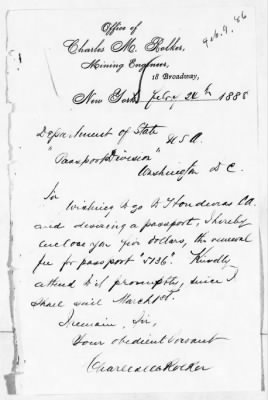 Office of
Charles M. Rolker,
Mining Engineer,
18 Broadway,
New York, Feb'y 24th 1888
Department of State U S A
"Passport Division"
Washington D C.
Sir
Wishing to go to Honduras C A.
and desiring a passport, I hereby
enclose you five dollars, the renewal
fee for passport "5136". Kindly
attend to it promptly, since I
shall sail March 1st.
I remain, Sir,
Your obedient servant
Charles M Rolker